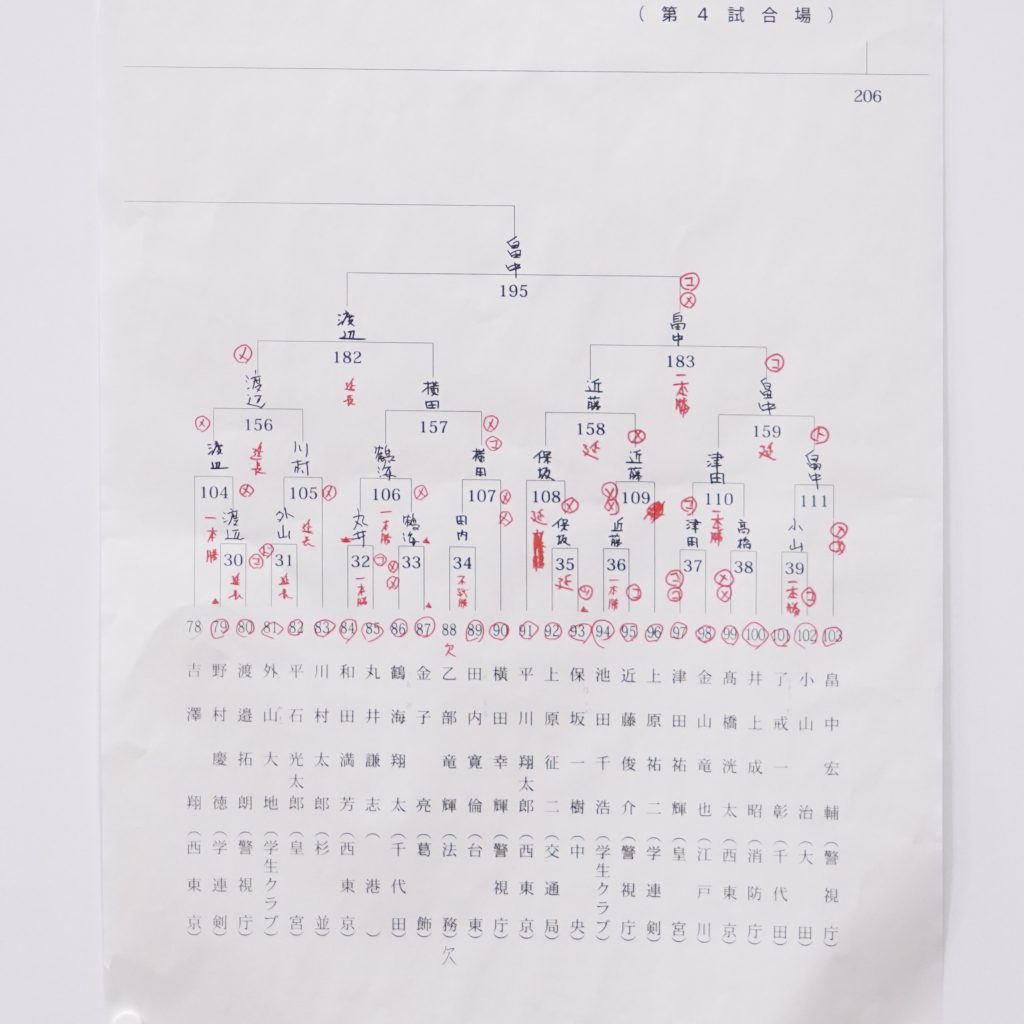 (第4試合場)
206
畠中
195
コ
メ
渡辺
畠中
メ
182
183
コ
延長
一本勝
渡辺
横田
近藤
畠中
メ
156
157
メ
コ
158
159
ト
延長
延
メ
延
渡辺
川村
鶴海
横田
保坂
近藤
津田
畠中
104
メ
105
メ
106
メ
107
メ
メ
108
メ
メ
109
コ
110
111
一本勝
渡辺
外山
延長
丸井
一本勝
鶴海
田内
延
保坂
近藤
津田
一本勝
高橋
小山
メ
30
コ
ト
31
32
コ
33
34
35
36
37
38
39
延長
延長
一本勝
メ
メ
不戦勝
延
一本勝
コ
コ
コ
メ
メ
一本勝
コ
78 79 80 81 82 83 84 85 86 87 88 89 90 91 92 93 94 95 96 97 98 99 100 101 102 103
欠
畠中宏輔(警視庁)
小山治(大田)
了戒一彰(千代田)
井上成昭(消防庁)
髙橋洸太(西東京)
金山竜也(江戸川)
津田祐輝(皇宮)
上原祐二(学連剣)
近藤俊介(警視庁)
池田千浩(学生クラブ)
保坂一樹(中央)
上原征二(交通局)
平川翔太郎(西東京)
横田幸輝(警視庁)
田内寛倫(台東)
乙部竜輝(法務)欠
金子亮(葛飾)
鶴海翔太(千代田)
丸井謙志(港)
和田満芳(西東京)
川村太郎(杉並)
平石光太郎(皇宮)
外山大地(学生クラブ)
渡邉拓朗(警視庁)
野村慶徳(学連剣)
吉澤翔(西東京)